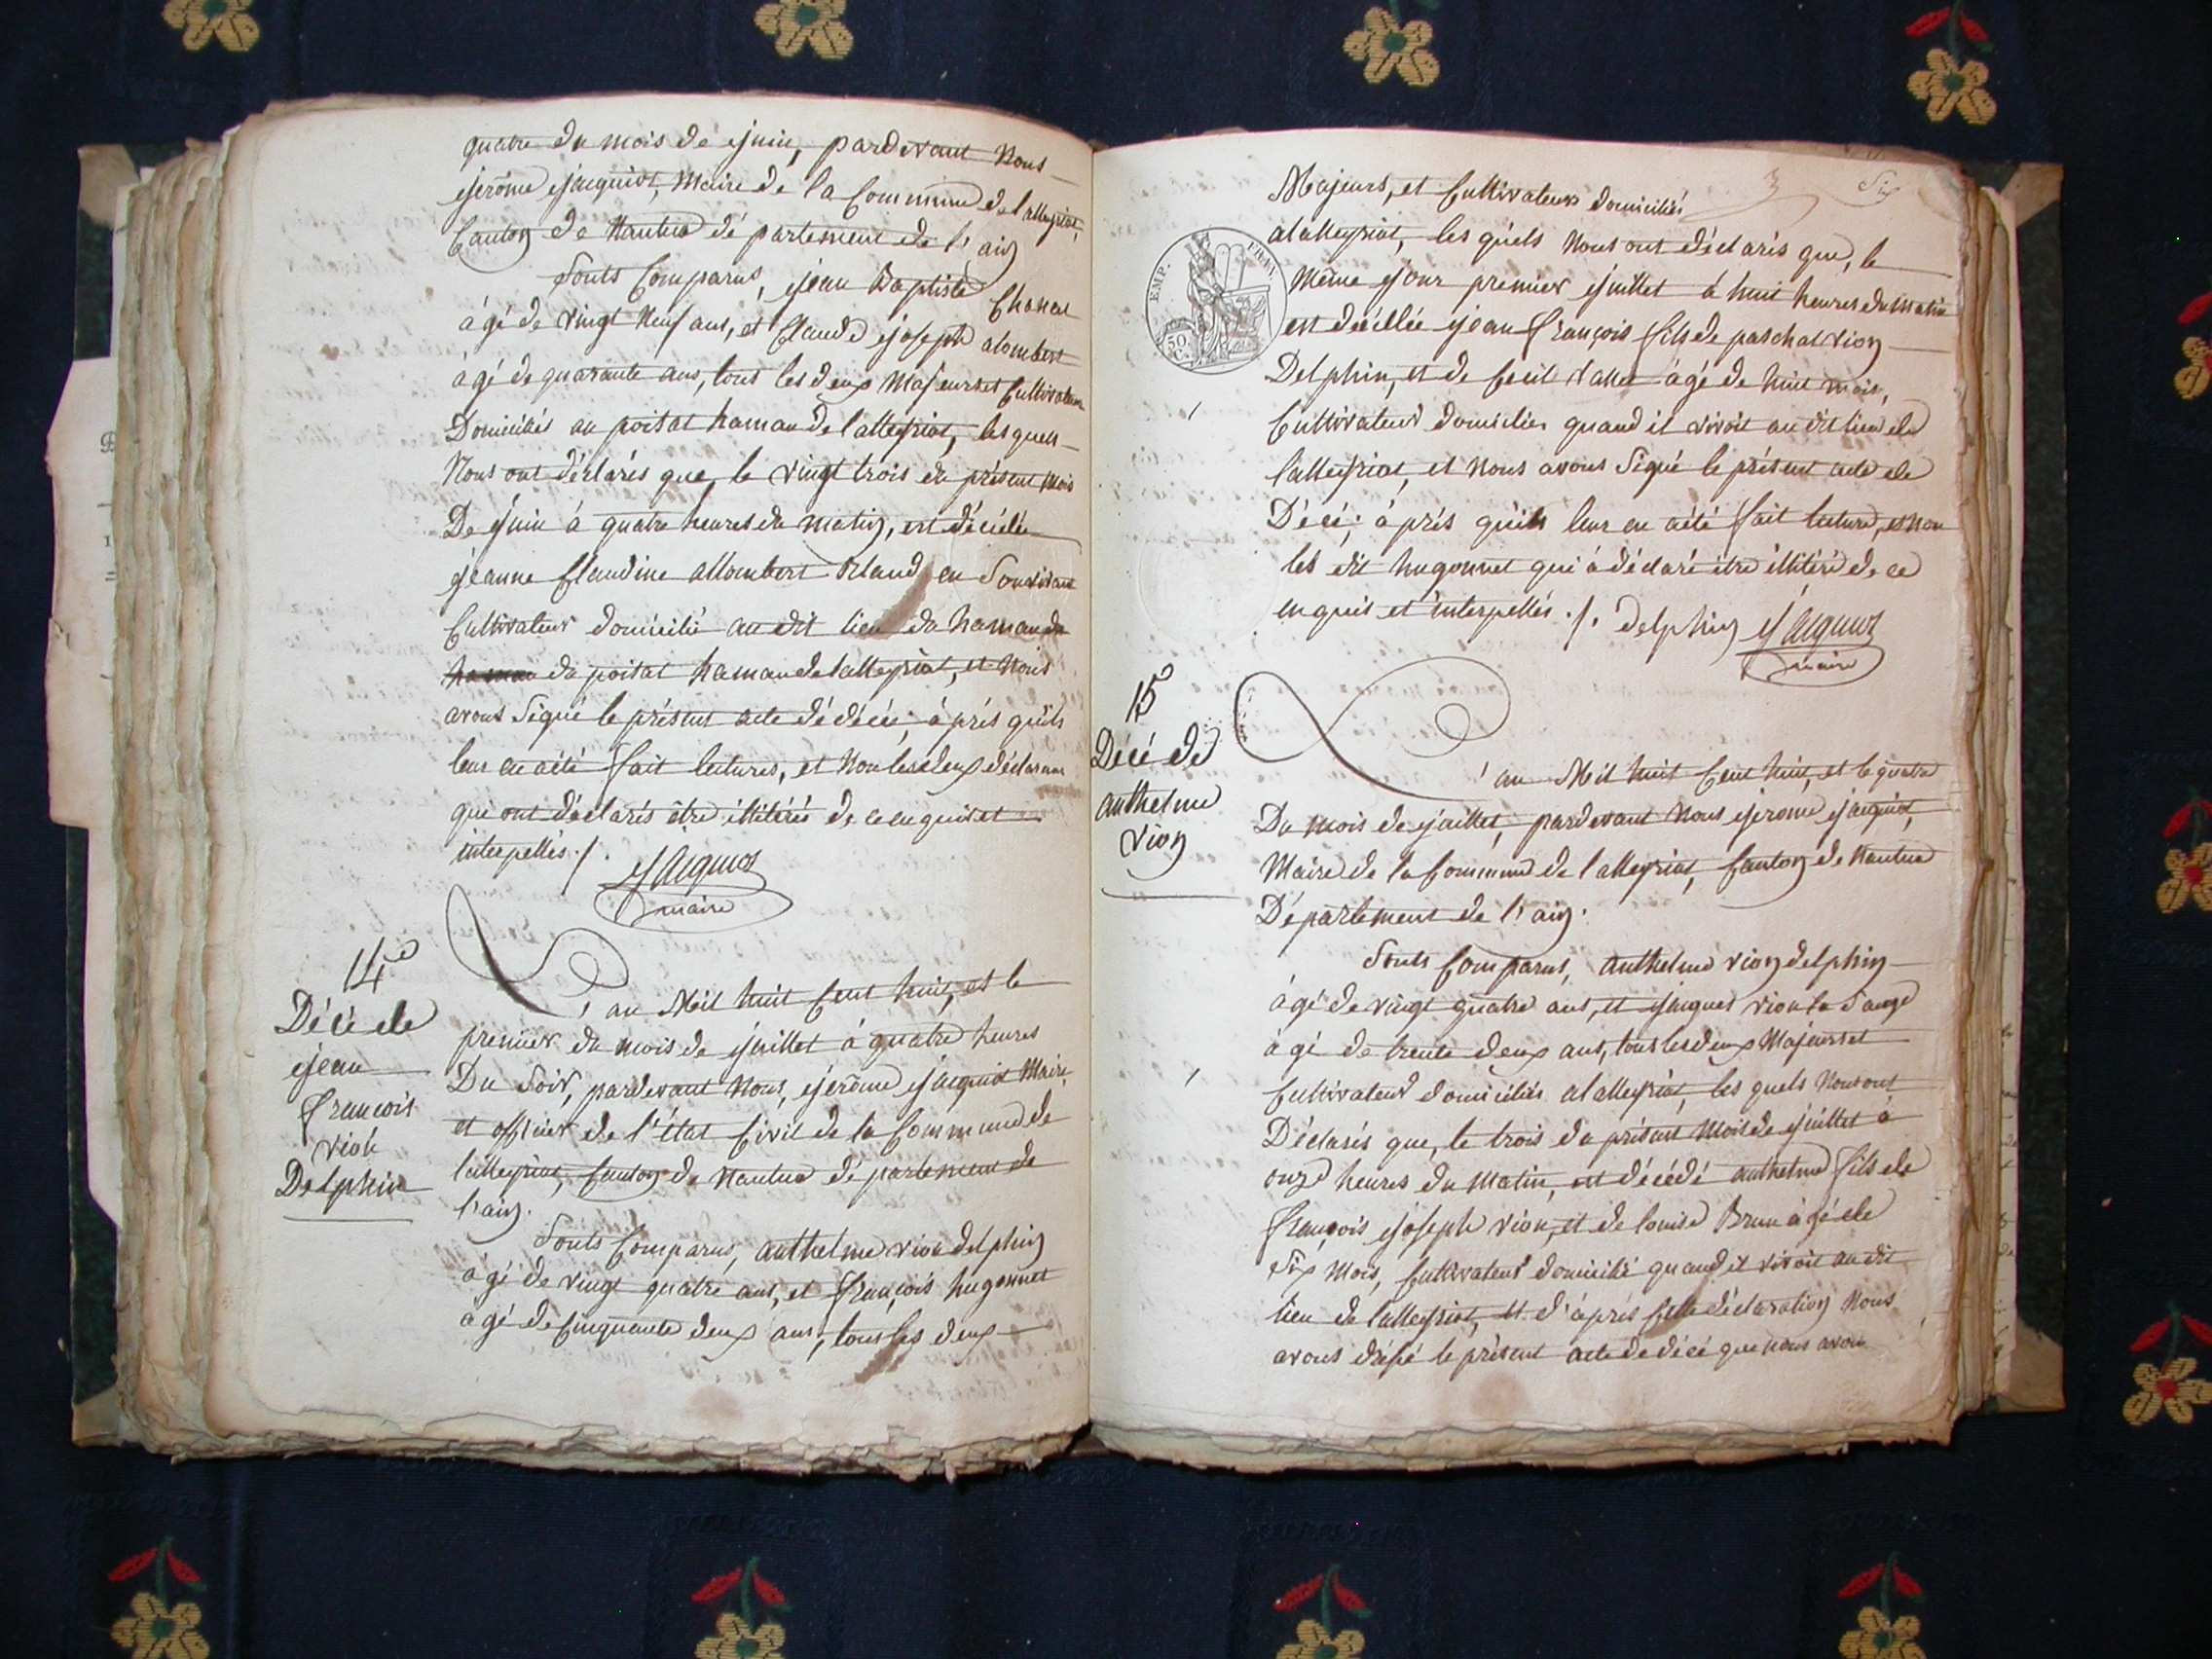 quatre du mois de juin, pardevant Nous
jerôme jacquiot, Maire de la Commune de lalleyriat,
Canton de Nantua dé partement de l'ain
Sonts Comparus, jean Baptiste Chanal
à gé de vingt Neuf ans, et Claude joseph alombert
à gé de quarante ans, tous les deux Majeurs et Cultivateurs
Domiciliés au poisat hamau de lalleyriat, les quels
Nous ont déclarés que, le vingt trois du présent mois
De juin à quatre heures du matin, est décédée
jéanne Claudine allombert en Son vivant
Cultivateur domicilié au dit lieu du hamau du
hamau du poisat hamau de lalleyriat, et Nous
avons Signé le présent acte dé décée; à prés qu'ils
leur en aété fait lectures, et Non les deux déclarans
qui ont déclarés être illitérés de ce enquis et
interpellés ./.
Jacquiot
maire
14e
Décé de
jean
françois
vion
Delphin
L'an Mil huit Cent huit, et le
premier du mois de juillet à quatre heures
Du Soir, pardevant Nous, jerôme jacquiot Maire
et officier de l'état Civil de la Commune de
lalleyriat, Canton de Nantua dé partement de
l'ain.
Sonts Comparus, anthelme vion delphin
à gé de vingt quatre ans, et françois hugonnet
à gé de Cinquante deux ans, tous les deux
Six
Majeurs, et Cultivateurs domiciliés
alalleyriat, les quels Nous ont déclarés que, le
EMP. FRAN
50 C.
Même jour premier juillet à huit heures du Matin
est décédée jean françois fils de paschal vion
Delphin, et de Cecil vallet à gé de huit mois,
Cultivateur domicilier quand il vivoit au dit lieu de
lalleyriat, et Nous avons Signé le présent acte de
Décé; à prés qu'ils leur en aété fait lecture, et Non
les dit hugonnet qui à déclaré être illitéré de ce
enquis et interpellés ./. delphin Jacquiot
maire
15e
Décé de
anthelme
vion
L'an Mil huit Cent huit, et le quatre
Du mois de juillet, pardevant Nous jerome jacquiot,
Maire de la Commune de lalleyriat, Canton de Nantua
Département de l'ain.
Sonts Comparus, anthelme vion delphin
à gé de vingt quatre ans, et jacques vion
à gé de trente deux ans, tous les deux Majeurs et
Cultivateurs domiciliés alalleyriat, les quels Nous ont
Déclarés que, le trois du présent Mois de juillet à
onze heures du Matin, est décédé anthelme fils de
françois joseph vion, et de louise Brun à gé de
Six Mois, Cultivateur domicilié quand il vivoit au dit
lieu de lalleyriat, et d'après Cette déclaration Nous
avons dréssé le présent acte de décé que nous avons